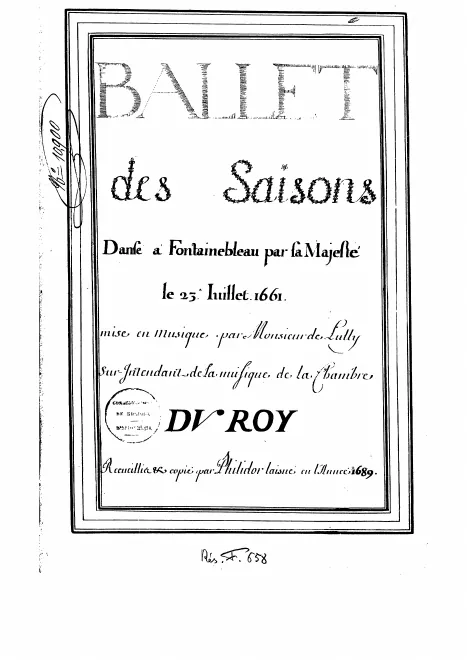 BALLET
des Saisons
Dansé a Fontainebleau par sa Majesté
le 23.e Iuillet. 1661.
mise en musique par Monsieur de Lully
Sur Jntendant de la musique de la Chambre
DV ROY
Recueillie & copié par Philidor laisné en l'Année 1689.
Rés. F. 658